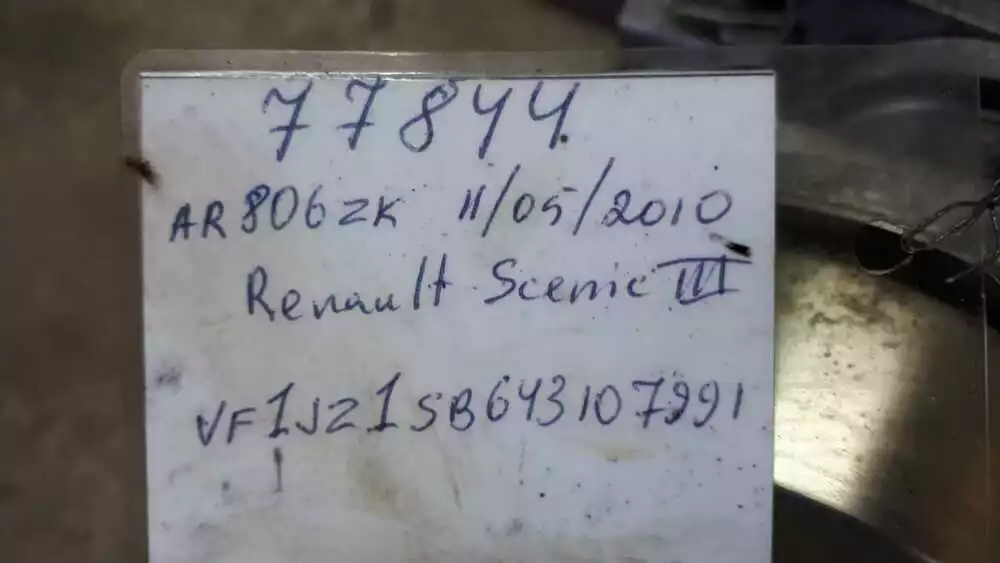 77844
AR806ZK 11/05/2010
Renault Scenic III
VF1JZ1SB643107991